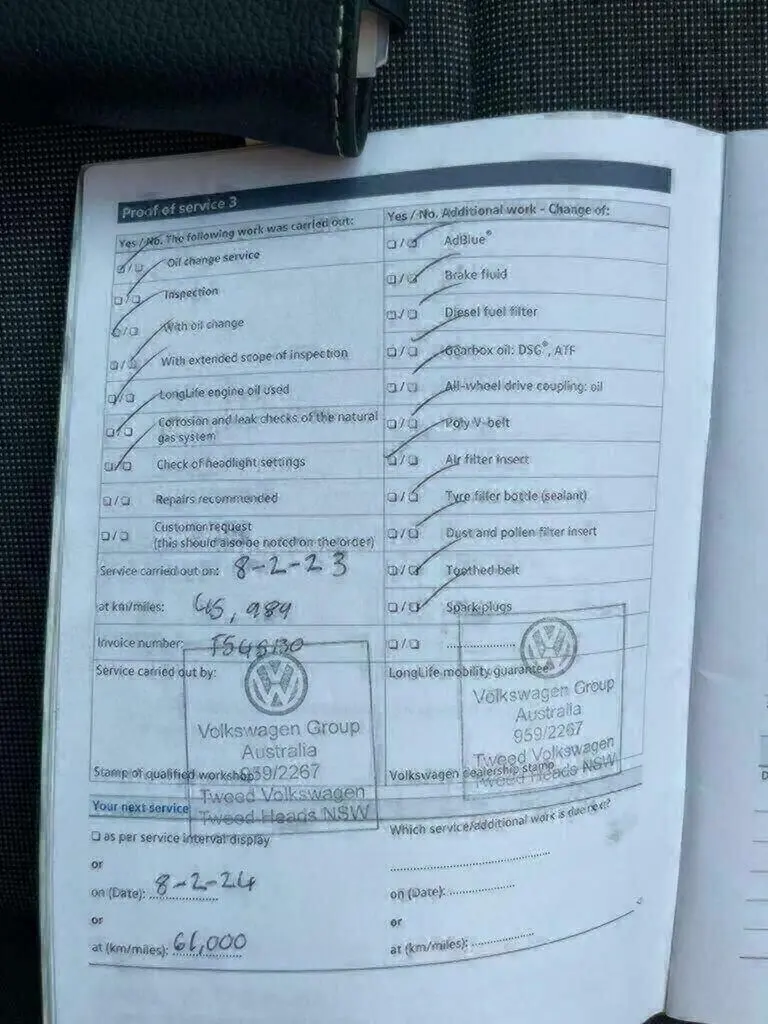 Proof of service 3
Yes / No. The following work was carried out:
Oil change service
Inspection
With oil change
With extended scope of inspection
LongLife engine oil used
Corrosion and leak checks of the natural
gas system
Check of headlight settings
Repairs recommended
Customer request
(this should also be noted on the order)
Service carried out on: 8-2-23
at km/miles: 45,989
Invoice number:
Service carried out by:
Volkswagen Group
Australia
959/2267
Tweed Volkswagen
Tweed Heads NSW
Stamp of qualified workshop
Yes / No. Additional work - Change of:
AdBlue®
Brake fluid
Diesel fuel filter
Gearbox oil: DSG®, ATF
All-wheel drive coupling: oil
Poly V-belt
Air filter insert
Tyre filler bottle (sealant)
Dust and pollen filter insert
Toothed belt
Spark plugs
LongLife mobility guarantee
Volkswagen Group
Australia
959/2267
Tweed Volkswagen
Tweed Heads NSW
Volkswagen dealership stamp
Your next service
as per service interval display
or
on (Date): 8-2-24
or
at (km/miles): 61,000
Which service/additional work is due next?
on (Date):
or
at (km/miles):